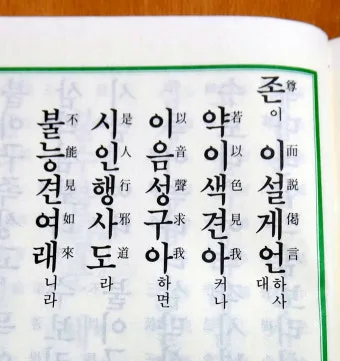 존尊이 이而설説게偈언言하사대
약若이以색色견見아我커나
이以음音성聲구求아我하면
시是인人행行사邪도道라
불不능能견見여如래來니라